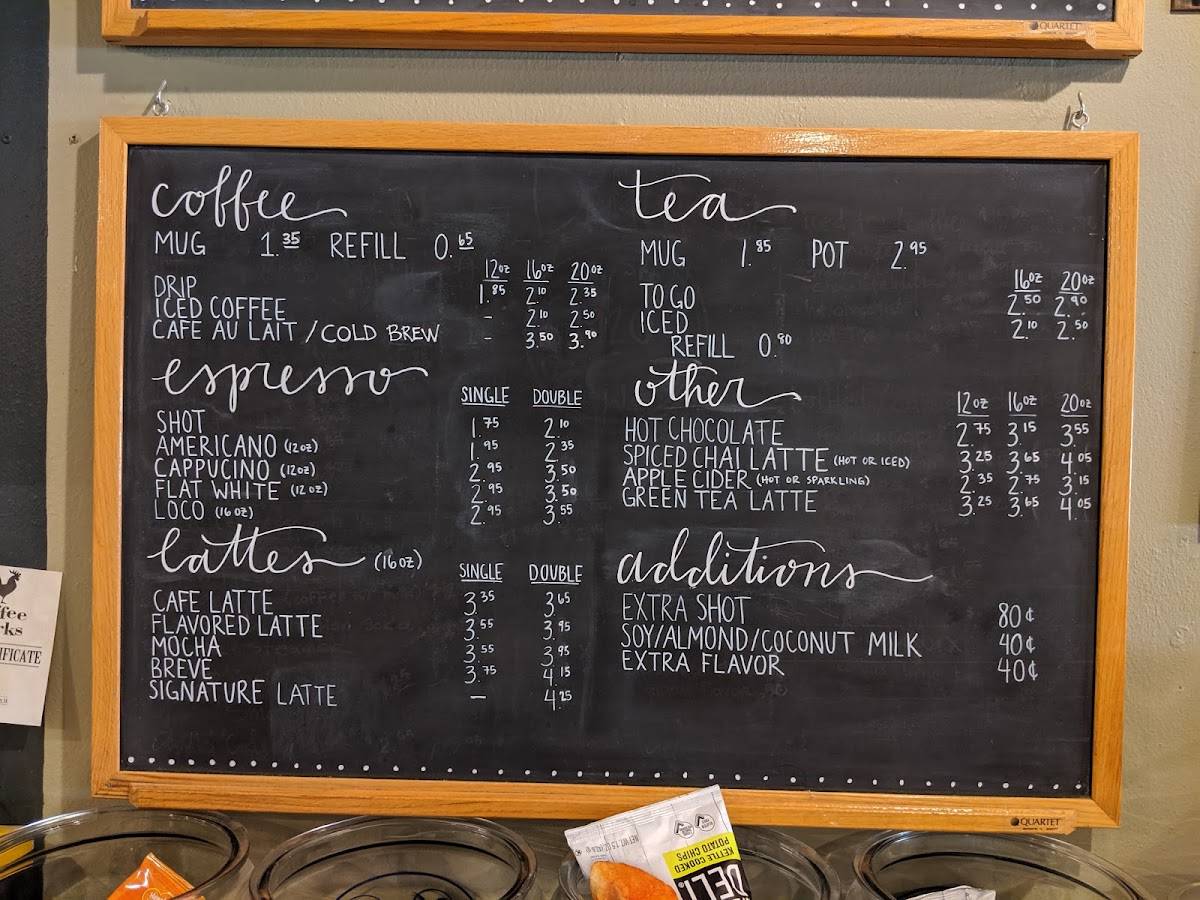 QUARTET
coffee
MUG 1.35 REFILL 0.65
12oz 16oz 20oz
DRIP 1.85 2.10 2.35
ICED COFFEE - 2.10 2.50
CAFE AU LAIT / COLD BREW - 3.50 3.90
espresso
SINGLE DOUBLE
SHOT 1.75 2.10
AMERICANO (12oz) 1.95 2.35
CAPPUCINO (12oz) 2.95 3.50
FLAT WHITE (12oz) 2.95 3.50
LOCO (16oz) 2.95 3.55
lattes (16oz)
SINGLE DOUBLE
CAFE LATTE 3.35 3.65
FLAVORED LATTE 3.55 3.95
MOCHA 3.55 3.95
BREVE 3.75 4.15
SIGNATURE LATTE — 4.25
tea
MUG 1.85 POT 2.95
16oz 20oz
TO GO 2.50 2.90
ICED 2.10 2.50
REFILL 0.80
other
12oz 16oz 20oz
HOT CHOCOLATE 2.75 3.15 3.55
SPICED CHAI LATTE (HOT OR ICED) 3.25 3.65 4.05
APPLE CIDER (HOT OR SPARKLING) 2.35 2.75 3.15
GREEN TEA LATTE 3.25 3.65 4.05
additions
EXTRA SHOT 80¢
SOY/ALMOND/COCONUT MILK 40¢
EXTRA FLAVOR 40¢
QUARTET
KETTLE COOKED
POTATO CHIPS
DELI